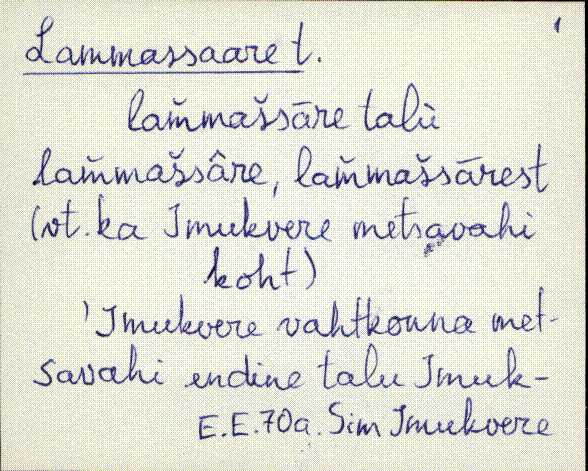 1
Lammassaare t.
lam̆mas̆sāre talù
lam̆mas̆sâre, lam̆mas̆sārest
(vt. ka Imukvere metsavahi
koht)
'Imukvere vahtkonna met-
savahi endine talu Imuk-
E.E.70a. Sim Imukvere